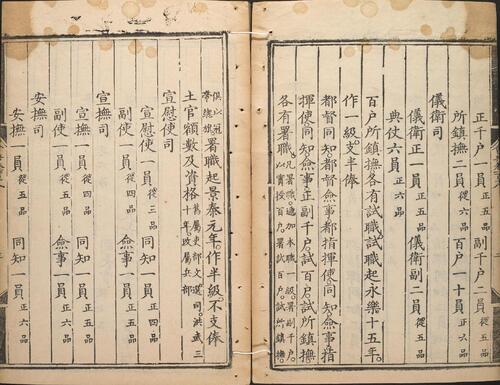 正千户二員 正五品 副千户二員 從五品
所鎮撫二員 從六品 百户一十員 正六品
儀衛司
儀衛正一員 正五品 儀衛副二員 從五品
典仗六員 正六品
百户所鎮撫各有試職試職起永樂十五年。
作一級。支半俸
都督同知都督僉事都指揮使同知僉事指
揮使同知僉事正副千户試百户試所鎮撫
各有署職 凡署職。遞加本職一級。署副千户。以實授百户。署試百户。試所鎮撫。
俱以冠帶總旗 署職起景泰元年作半級。不支俸
土官額數及資格 舊屬吏部文選司。洪武三十年。改屬兵部
宣慰使司
宣慰使一員 從三品 同知一員 正四品
副使一員 從四品 僉事一員 正五品
宣撫司
宣撫一員 從四品 同知一員 正五品
副使一員 從五品 僉事一員 正六品
安撫司
安撫一員 從五品 同知一員 正六品